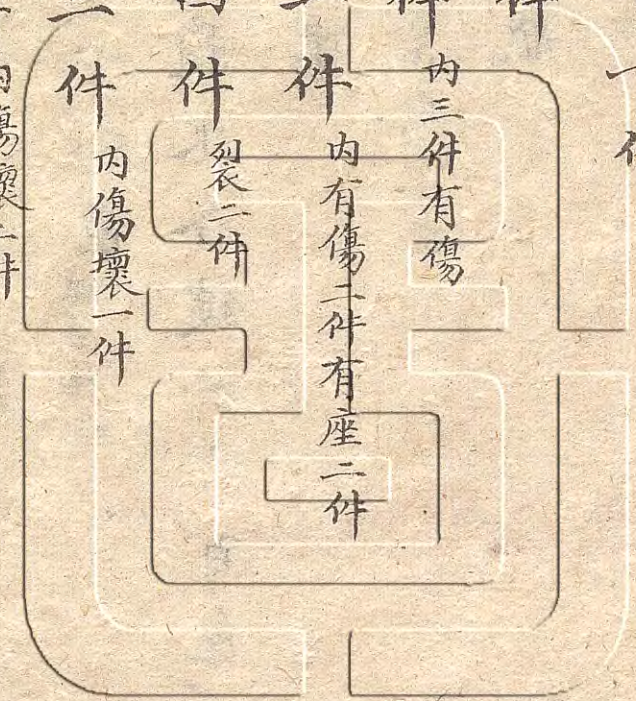 件
件
件 内三件有傷
件 内有傷二件有座二件
件 裂二件
二件 内傷壞一件
内傷壞二件